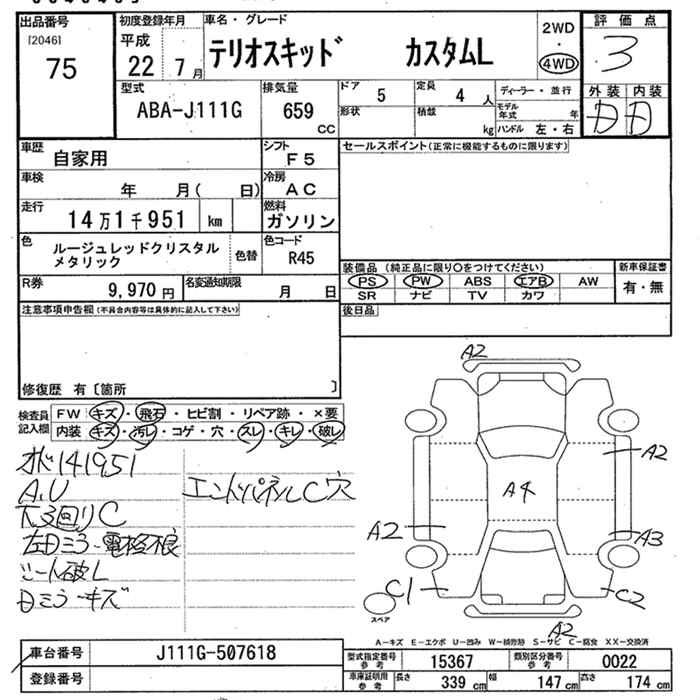 出品番号
[2046]
75
初度登録年月
平成
22 7月
車名・グレード
テリオスキッド カスタムL
2WD
・
4WD
評価点
3
外装 内装
D D
型式
ABA-J111G
排気量
659
CC
ドア
5
定員
4 人
形状
積載
kg
ディーラー・並行
モデル年式 年
ハンドル 左・右
車歴
自家用
シフト
F5
車検
年 月( 日)
冷房
AC
走行
14万1千951 km
燃料
ガソリン
色
ルージュレッドクリスタル
メタリック
色替
色コード
R45
R券
9,970 円
名変通知期限
月 日
セールスポイント(正常に機能するものに限ります)
装備品(純正品に限り○をつけてください)
PS PW ABS エアB AW
SR ナビ TV カワ
新車保証書
有・無
後日品
注意事項申告欄(不具合内容等は具体的に記入して下さい)
修復歴 有〔箇所 〕
検査員
記入欄
FW キズ・飛石・ヒビ割・リペア跡・×要
内装 キズ・汚レ・コゲ・穴・スレ・キレ・破レ
オド141951
A.U
下回りC
左Dミラー電格不良
シート破レ
Dミラーキズ
エンドパネルC穴
A2
A2
A4
A2
A3
C1
C2
A2
スペア
A-キズ E-エクボ U-凹み W-補修跡 S-サビ C-腐食 XX-交換済
車台番号
J111G-507618
登録番号
型式指定番号
参考
15367
類別区分番号
参考
0022
車庫証明用
参考
長さ 339 cm
幅 147 cm
高さ 174 cm